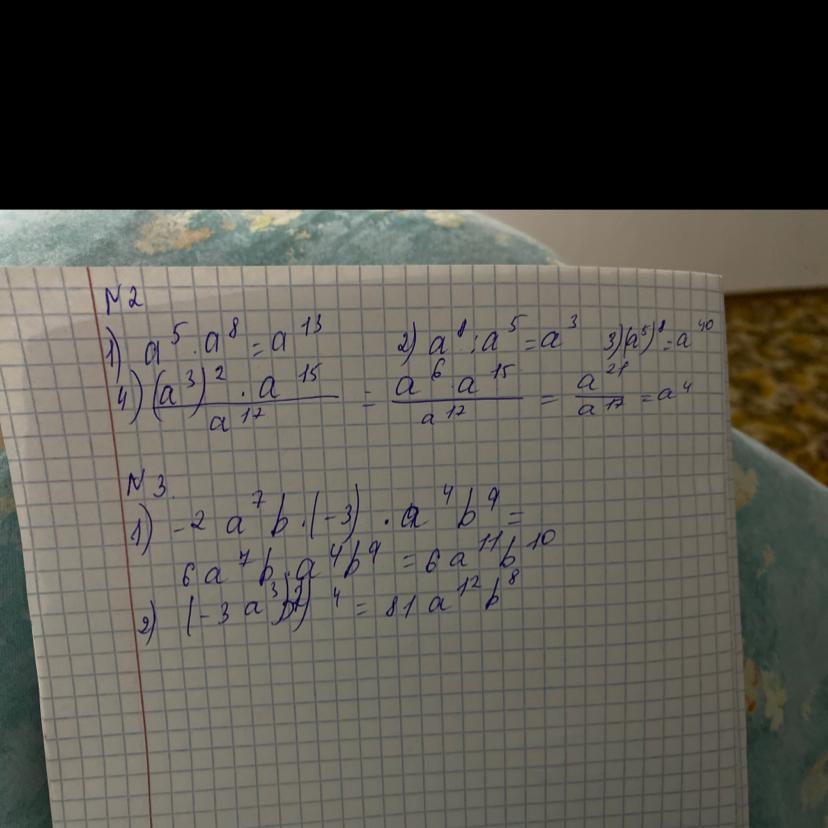 N2
1) a⁵ · a⁸ = a¹³ 2) a⁸ : a⁵ = a³ 3) (a⁵)⁸ = a⁴⁰
4) (a³)² · a¹⁵ / a¹⁷ = a⁶ · a¹⁵ / a¹⁷ = a²¹ / a¹⁷ = a⁴
N3.
1) -2 a⁷ b · (-3) · a⁴ b⁹ =
6 a⁷ b · a⁴ b⁹ = 6 a¹¹ b¹⁰
2) (-3 a³ b²)⁴ = 81 a¹² b⁸